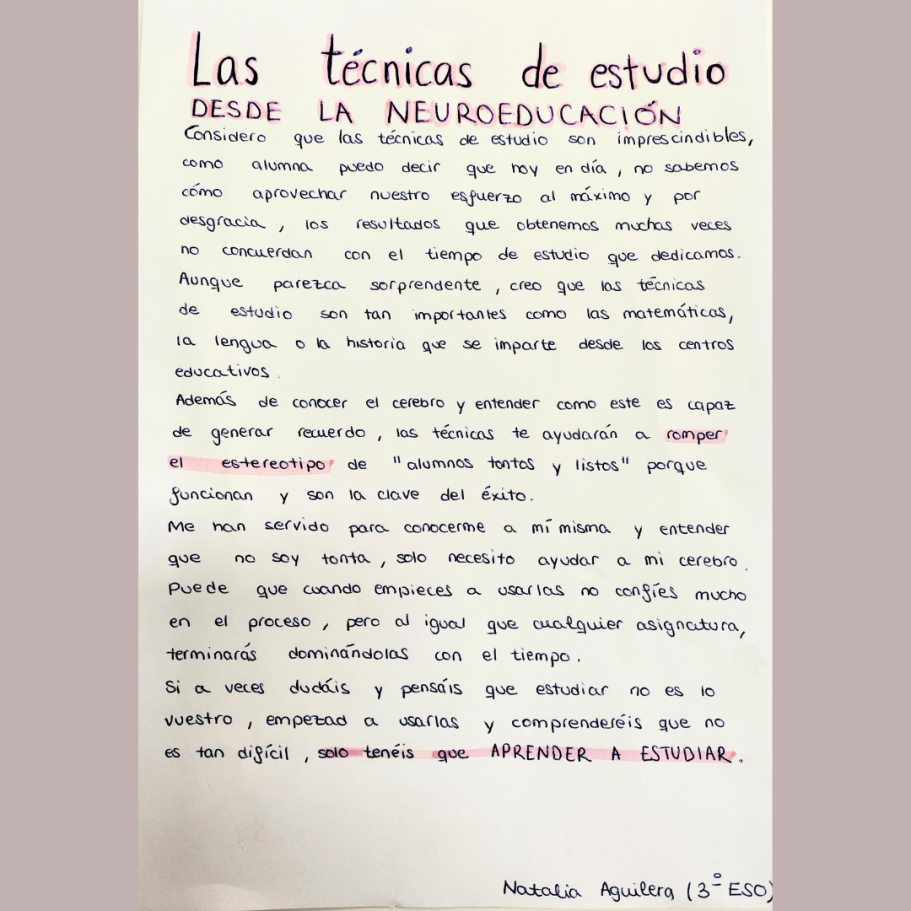 Las técnicas de estudio
DESDE LA NEUROEDUCACIÓN
Considero que las técnicas de estudio son imprescindibles,
como alumna puedo decir que hoy en día, no sabemos
cómo aprovechar nuestro esfuerzo al máximo y por
desgracia, los resultados que obtenemos muchas veces
no concuerdan con el tiempo de estudio que dedicamos.
Aunque parezca sorprendente, creo que las técnicas
de estudio son tan importantes como las matemáticas,
la lengua o la historia que se imparte desde los centros
educativos.
Además de conocer el cerebro y entender como este es capaz
de generar recuerdo, las técnicas te ayudarán a romper
el estereotipo de "alumnos tontos y listos" porque
funcionan y son la clave del éxito.
Me han servido para conocerme a mí misma y entender
que no soy tonta, solo necesito ayudar a mi cerebro.
Puede que cuando empieces a usarlas no confíes mucho
en el proceso, pero al igual que cualquier asignatura,
terminarás dominándolas con el tiempo.
Si a veces dudáis y pensáis que estudiar no es lo
vuestro, empezad a usarlas y comprenderéis que no
es tan difícil, solo tenéis que APRENDER A ESTUDIAR.
Natalia Aguilera (3º ESO)